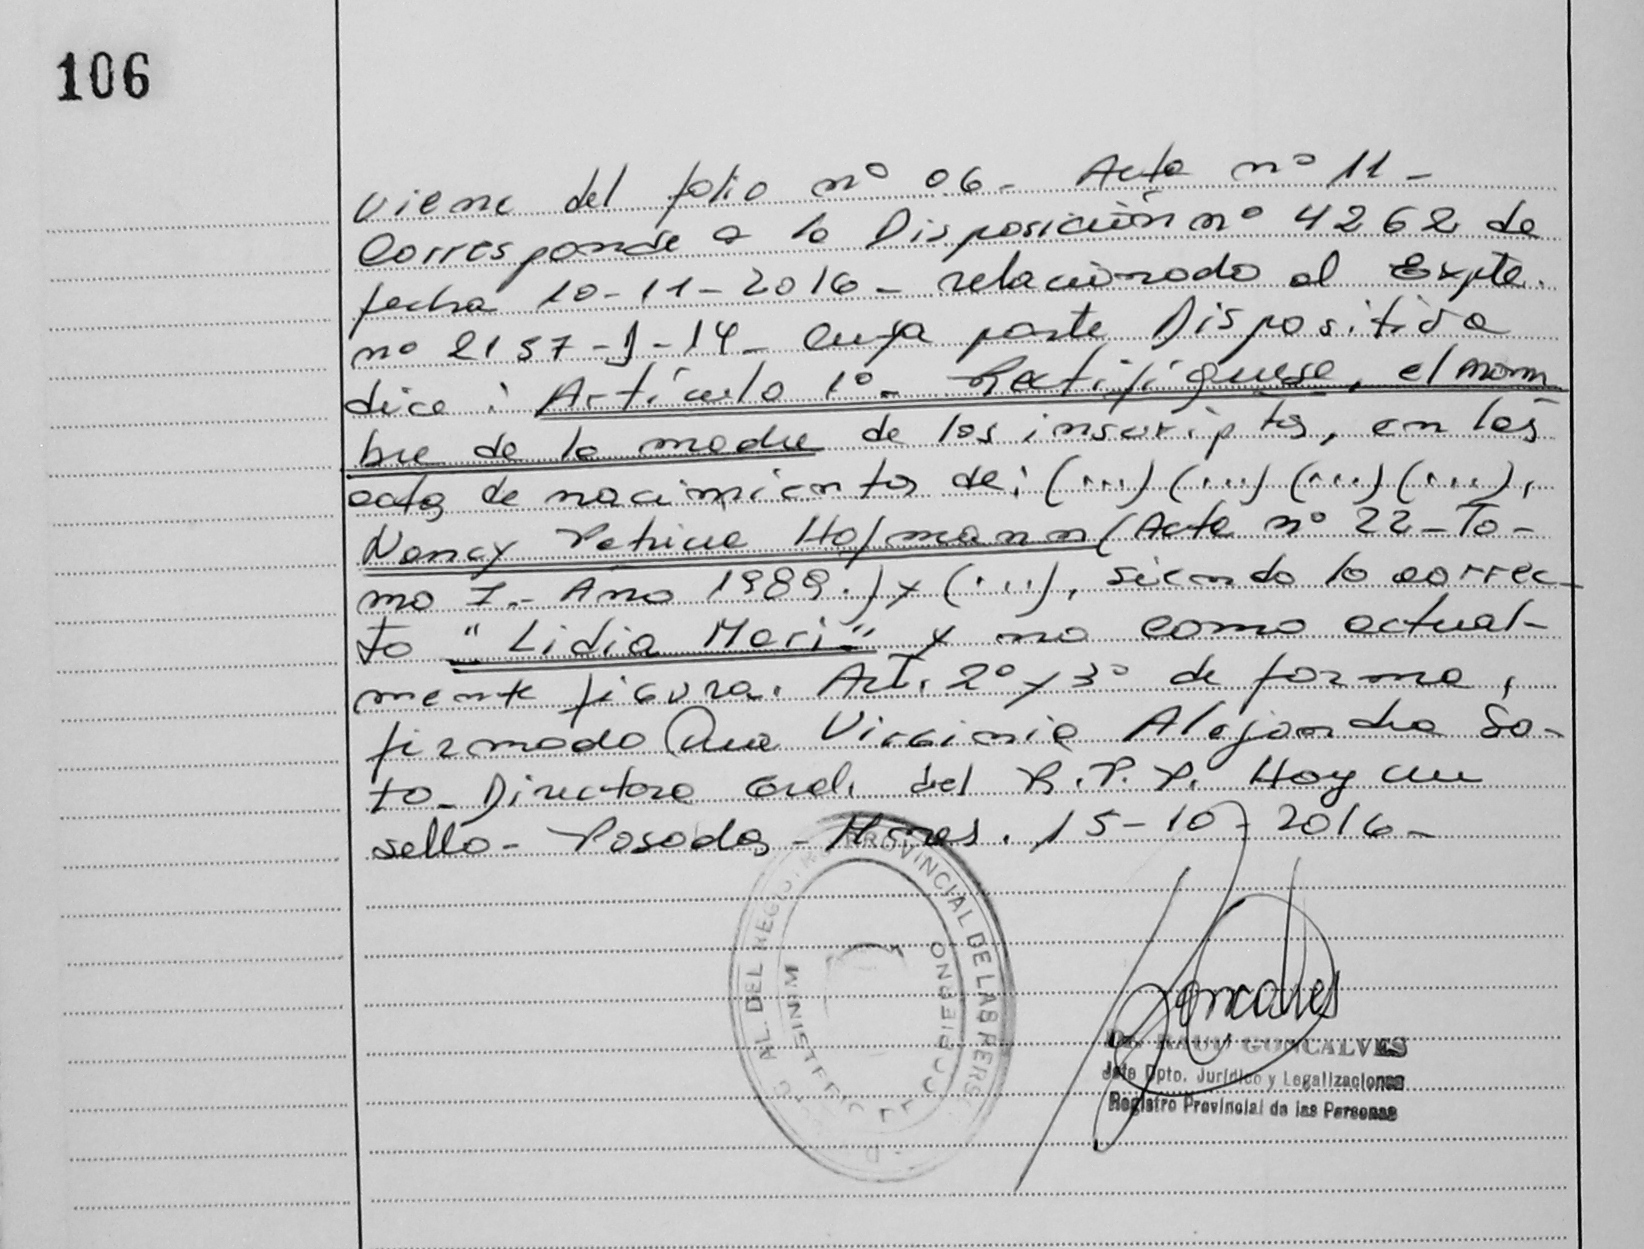 106
Viene del folio nº 06- Acta nº 11-
Corresponde a la Disposición nº 4262 de
fecha 10-11-2016- relacionado al Expte.
nº 2157-J-14- cuya parte Dispositiva
dice: Artículo 1º- Rectifíquese, el nom
bre de la madre de los inscriptos, en las
actas de nacimientos de: (...) (...) (...) (...),
Nancy Patricia Hofmann (Acta nº 22-To-
mo I.- Año 1989.) y (...), siendo lo correc-
to "Lidia Mari" y no como actual-
mente figura. Art. 2º y 3º de forma,
firmado Virginia Alejandra So-
to- Directora Gral. del R.P.P. Hoy un
sello- Posadas- Mnes. 15-10-2016-
AL DEL REGISTRO PROVINCIAL DE LAS PERS
MINISTERIO DE GOBIERNO
Goncalves
Dr. RAUL GONCALVES
Jefe Dpto. Jurídico y Legalizaciones
Registro Provincial de las Personas